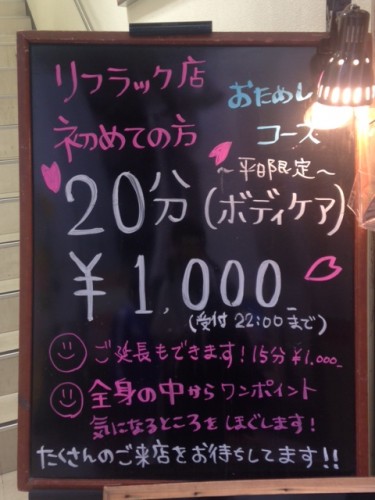 リフラック店 おためし
初めての方 コース
～平日限定～
20分(ボディケア)
¥1,000
(受付 22:00まで)
ご延長もできます!15分¥1,000
全身の中からワンポイント
気になるところをほぐします!
たくさんのご来店をお待ちしてます!!